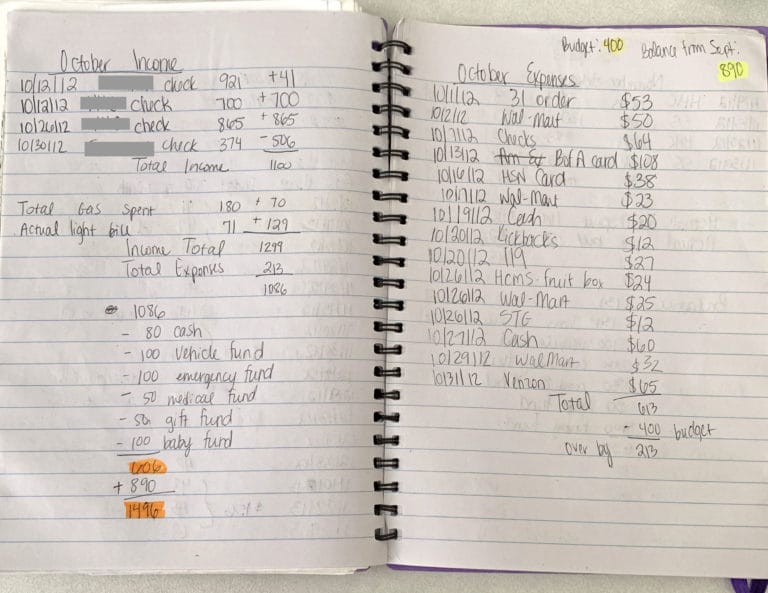 October Income
10/12/12 check 921 +41
10/12/12 check 700 +700
10/26/12 check 865 +865
10/30/12 check 374 -506
Total Income 1100
Total Gas Spent 180 + 70
Actual light bill 71 + 129
Income Total 1299
Total Expenses 213
1086
1086
- 80 cash
- 100 vehicle fund
- 100 emergency fund
- 50 medical fund
- 50 gift fund
- 100 baby fund
606
+ 890
1496
Budget: 400 Balance from Sept:
890
October Expenses
10/1/12 31 order $53
10/2/12 Wal-mart $50
10/7/12 Checks $64
10/13/12 BofA card $108
10/16/12 HSN Card $38
10/17/12 Wal-mart $23
10/19/12 Cash $20
10/20/12 Kickbacks $12
10/20/12 119 $27
10/26/12 Hcms-fruit box $24
10/26/12 Wal-Mart $25
10/26/12 STG $12
10/27/12 Cash $60
10/29/12 WalMart $32
10/31/12 Verizon $65
Total 613
- 400 budget
over by 213